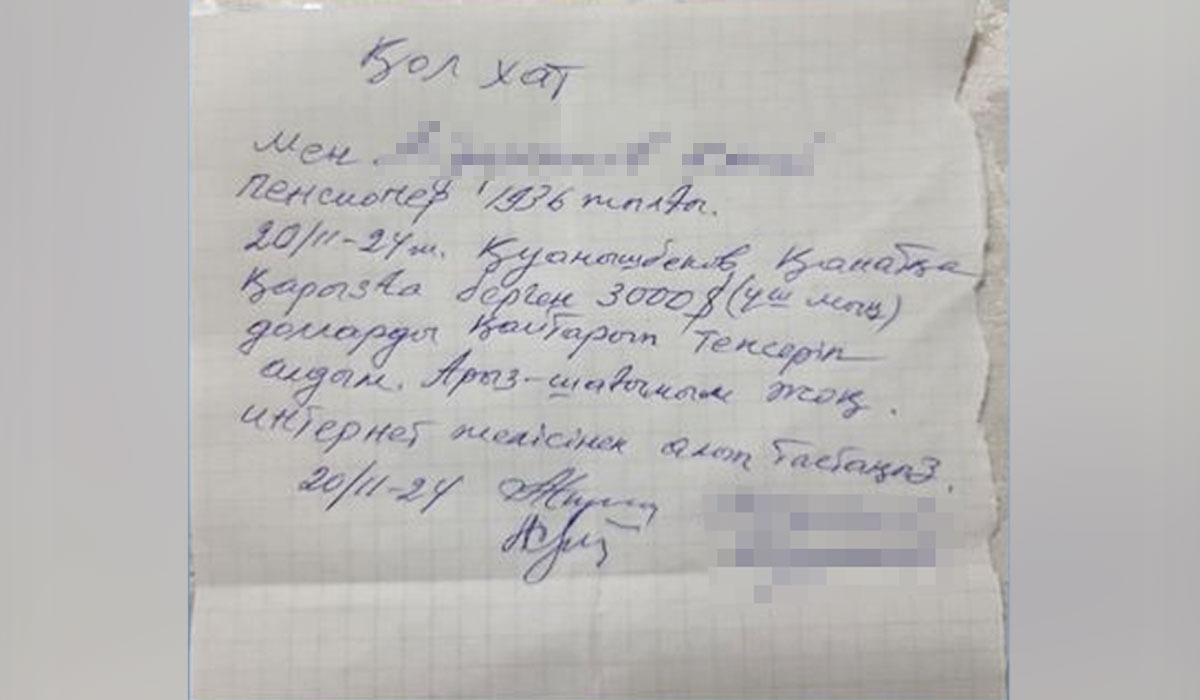 Қол хат
Мен
пенсионер 1936 жылғы.
20/11-24ж. Қуанышбеков Қанатқа
Қарызға берген 3000$ (үш мың)
долларды қайтарып тексеріп
алдым. Арыз-шағымым жоқ.
интернет желісінен алып тастаңыз.
20/11-24